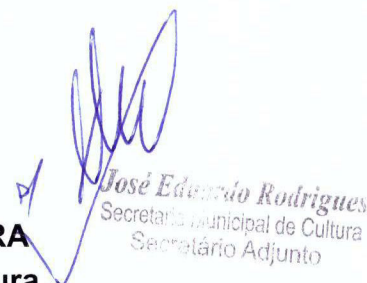 p/
José Eduardo Rodrigues
Secretaria Municipal de Cultura
Secretário Adjunto
RA
ura